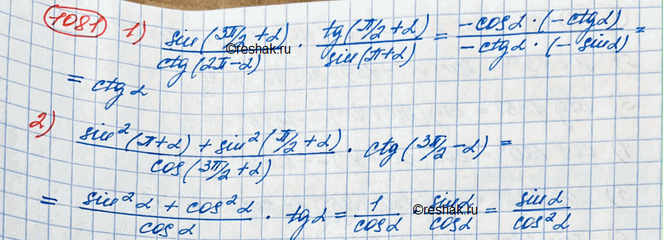 1081 1) sin(3π/2+α)/ctg(2π-α) · tg(π/2+α)/sin(π+α) = -cosα·(-ctgα)/-ctgα·(-sinα) =
©reshak.ru
= ctgα
2) sin²(π+α)+sin²(π/2+α)/cos(3π/2+α) · ctg(3π/2-α) =
= sin²α+cos²α/cosα · tgα = 1/cosα sinα/cosα = sinα/cos²α
©reshak.ru